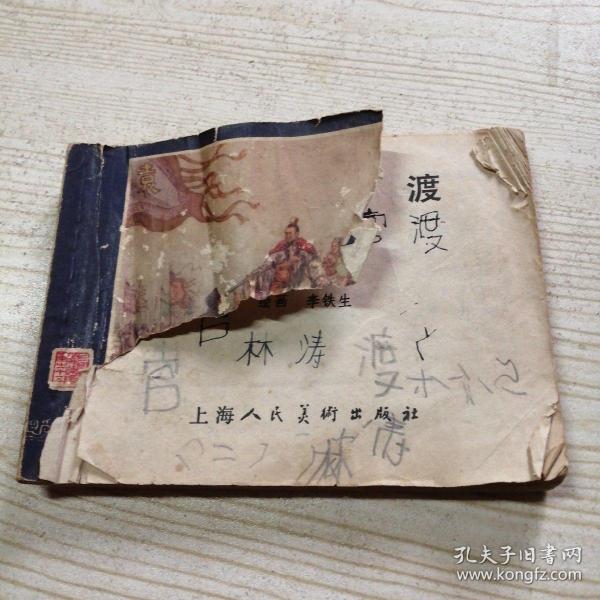 袁
渡
官 渡
绘画 李铁生
官 林涛 渡
官
上海人民美術出版社
林 涛
孔夫子旧书网
www.kongfz.com